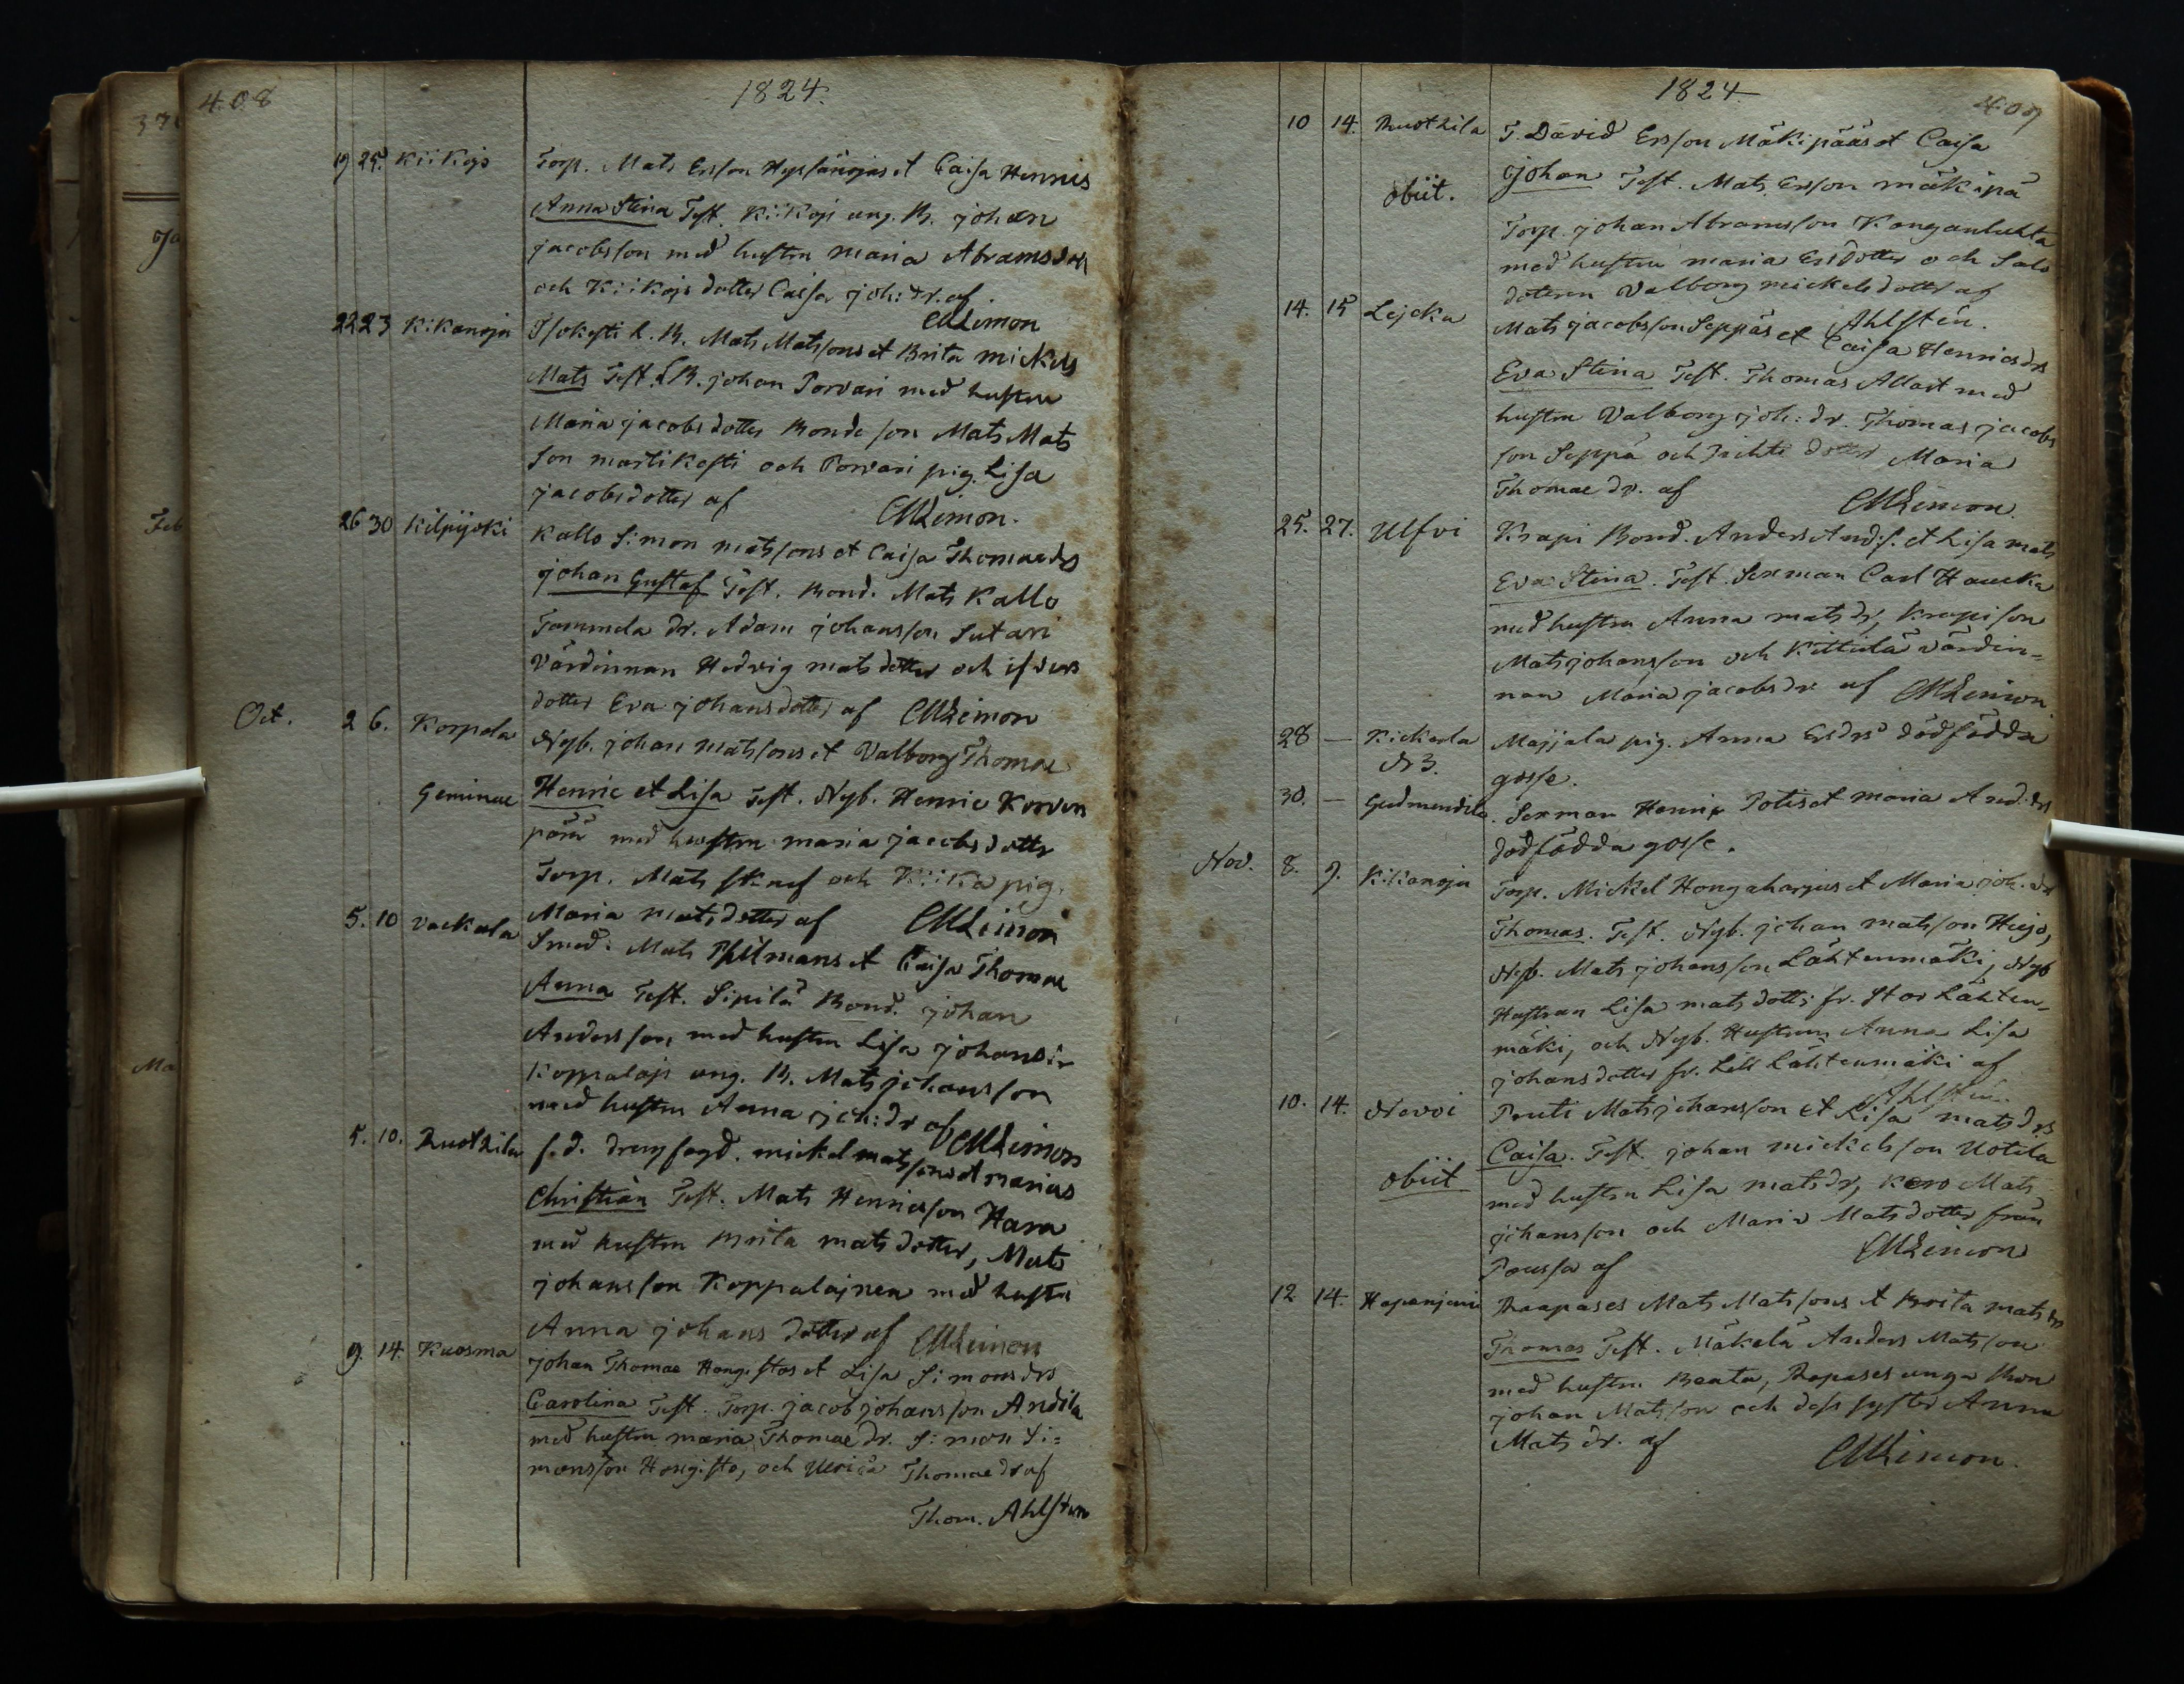 408
1824.
19 25. Kiikojs Torp. Mats Ersson et Caisa Henrics
Anna Stina Test. Kiikojs ung. B. johan
jacobsson med hustru maria Abramsdr
och Kiikojs dotter Caisa joh: dr. af.
CMLimon
22 23 Kikanoja h. B. Mats Matssons et Brita mickels
Mats Test. B. johan Porvari med hustru
Maria jacobsdotter Bondeson Mats Mats
son martikosti och Porvari pig. Lisa
jacobsdotter af CMLimon.
26 30 Kilpijoki Kallo Simon matssons et Caisa Thomaedrs
johan Gustaf Test. Bond. Mats Kallo
Tammela dr. Adam johansson Sutari
värdinnan Hedvig matsdotter och
dotter Eva johansdotter af CMLimon
Oct. 2 6. Korpela Nyb. johan matssons et Valborg Thomae
Geminae Henric et Lisa Test. Nyb. Henric Korven
pää med hustru maria jacobsdotter
Torp. Mats och Kiika pig.
Maria matsdotter af CMLimon
5. 10 Vackala Smed: Mats Pihlmans et Caisa Thomae
Anna Test. Sipilä Bond. johan
Andersson, med hustru Lisa johansdr
Koppalajs ung. B. Mats johansson
med hustru Anna joh: dr af CMLimon
5. 10. Ruothila f. d. drengfogd. mickel matssons et marias
Christian Test. Mats Henricsson Hara
med hustru Brita matsdotter, Mats
johansson Koppalajnen med hustru
Anna johansdotter af CMLimon
9. 14. Kuosma johan Thomae Hongistos et Lisa Simonsdrs
Carolina Test. Torp. jacob johansson Andila
med hustru maria Thomae dr. Simon Si=
monsson Hongisto, och Ulrica Thomae dr af
Thom. Ahlsten
1824
409
10 14. Ruothila T. David Ersson Mäkipääs et Caisa
obiit. johan Test. Mats Ersson mäkipä
Torp. johan Abramsson Kanganluhta
med hustru maria Ersdotter och Salo
dotern Valborg mickelsdotter af
Ahlstén.
14. 15 Lejcku Mats jacobsson Seppäs et Caisa Henricsdrs
Eva Stina Test. Thomas Allart med
hustru Valborg joh: dr. Thomas jacobs
son Seppä och dotter Maria
Thomae dr. af CMLimon.
25. 27. Ulfvi Krapi Bond. Anders And:s. et Lisa mats
Eva Stina. Test. Sexman Carl Haucka
med hustru Anna matsdr, Krapi son
Mats johansson och Kittilä värdin=
nan Maria jacobsdr af CMLimon.
28 — Kickerla Majjala pig. Anna Ersdrs dödfödda
N 3. gosse.
30. — Gudmundila. Sexman Henric Potis et maria And. drs
dödfödda gosse.
Nov. 8. 9. Kikanoja Torp. Mickel Hongaharjus et Maria joh. drs
Thomas. Test. Nyb. johan matsson Hiejo,
Nyb. Mats johansson Lähtenmäki, Nyb
Hustrun Lisa matsdotter fr. Stor Lähten=
mäki, och Nyb. Hustrun Anna Lisa
johansdotter fr. Lill Lähtenmäki af
Ahlstén.
10. 14. Novoi Penti Mats johansson et Lisa matsdrs
Caisa. Test. johan mickelsson Uotila
obiit med hustru Lisa matsdr, Kero Mats
johansson och Maria Matsdotter från
Poussa af CMLimon
12 14. Haapases Mats Matssons et Brita matsdrs
Thomas Test. Mäkelä Anders Matsson
med hustru Beata, Hapases unga Bon
johan Matsson och dess syster Anna
Matsdr. af CMLimon.